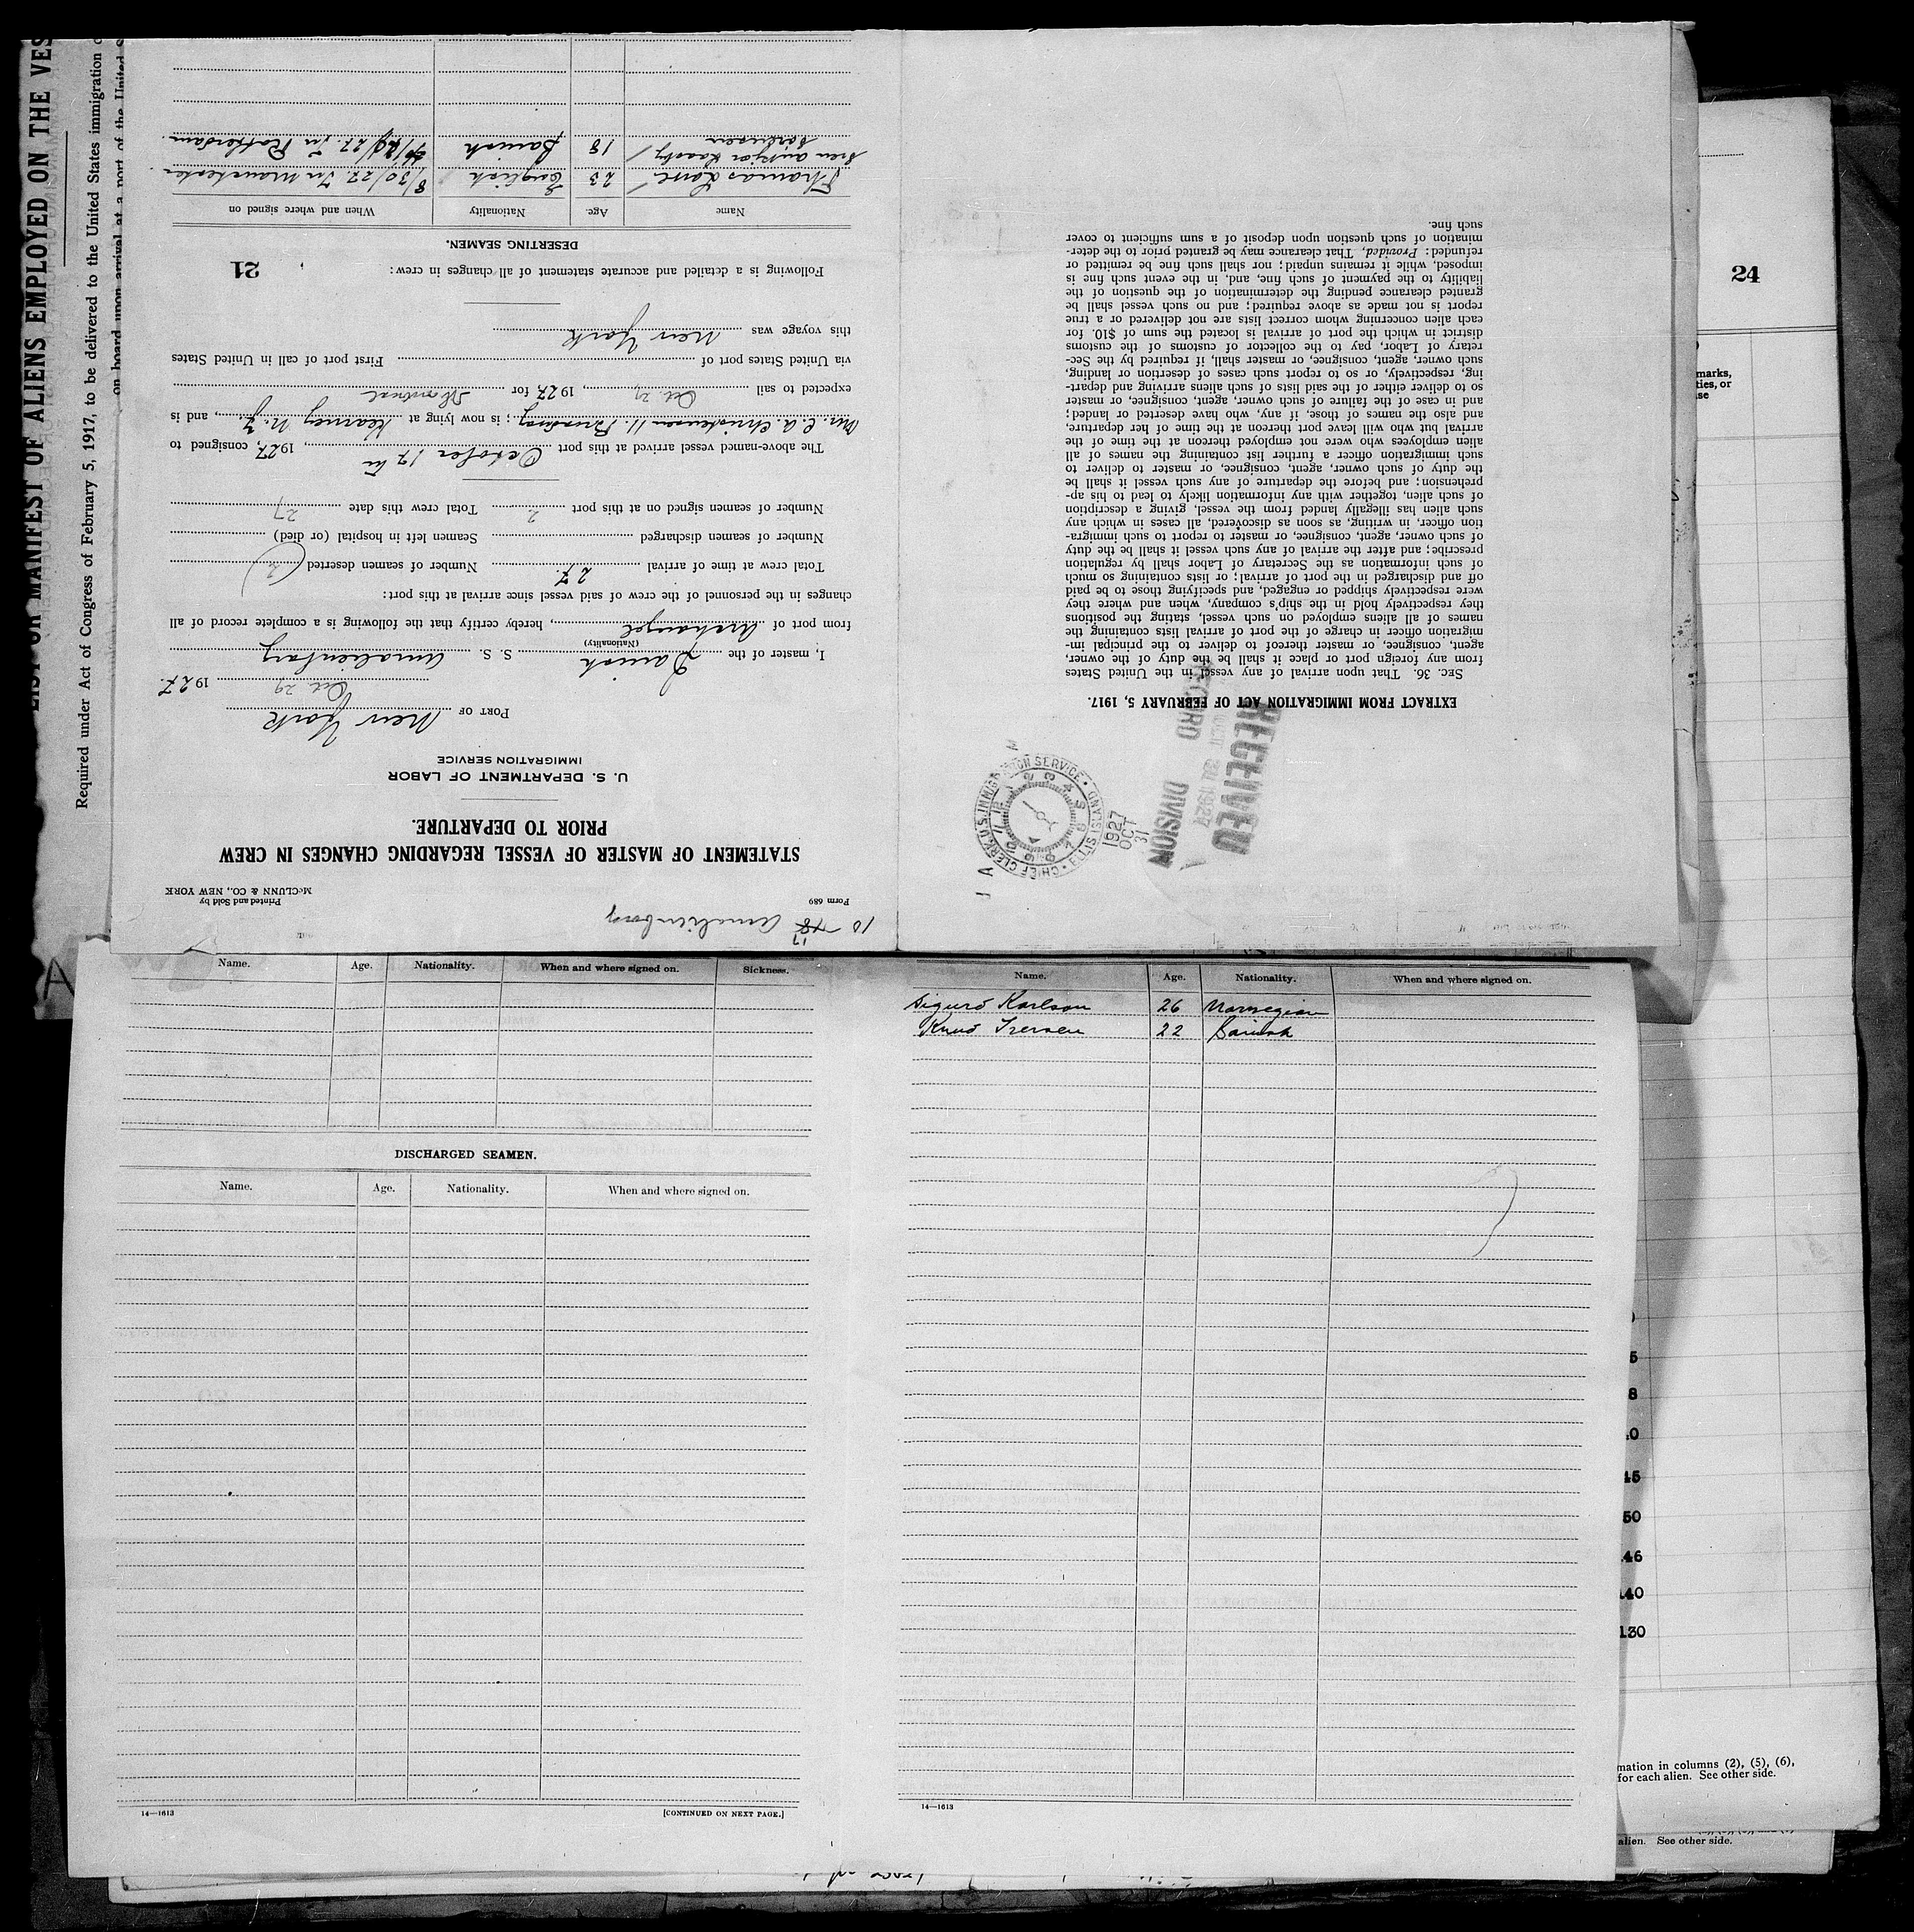 10 17 Amalienborg
Form 689
Printed and Sold by
McCLUNN & CO., NEW YORK
STATEMENT OF MASTER OF VESSEL REGARDING CHANGES IN CREW
PRIOR TO DEPARTURE.
U. S. DEPARTMENT OF LABOR
IMMIGRATION SERVICE
PORT OF New York
Oct. 29 1927.
I, master of the Danish S. S. Amalienborg
(Nationality)
from port of Archangel, hereby certify that the following is a complete record of all
changes in the personnel of the crew of said vessel since arrival at this port:
Total crew at time of arrival 27. Number of seamen deserted (2)
Number of seamen discharged Seamen left in hospital (or died)
Number of seamen signed on at this port 2 Total crew this date 27
The above-named vessel arrived at this port October 17th, 1927, consigned to
Mr. C. A. Christensen 11. Broadway; is now lying at Kearney N. J., and is
expected to sail Oct. 29, 1927 for Montreal
via United States port of First port of call in United States
this voyage was New York
Following is a detailed and accurate statement of all changes in crew: 21
DESERTING SEAMEN.
Name Age. Nationality When and where signed on
Thomas 23 English 8/30/27. In Manchester
18 Danish /27. in Rotterdam.
EXTRACT FROM IMMIGRATION ACT OF FEBRUARY 5, 1917.
SEC. 36. That upon arrival of any vessel in the United States
from any foreign port or place it shall be the duty of the owner,
agent, consignee, or master thereof to deliver to the principal im-
migration officer in charge of the port of arrival lists containing the
names of all aliens employed on such vessel, stating the positions
they respectively hold in the ship's company, when and where they
were respectively shipped or engaged, and specifying those to be paid
off and discharged in the port of arrival; or lists containing so much
of such information as the Secretary of Labor shall by regulation
prescribe; and after the arrival of any such vessel it shall be the duty
of such owner, agent, consignee, or master to report to such immigra-
tion officer, in writing, as soon as discovered, all cases in which any
such alien has illegally landed from the vessel, giving a description
of such alien, together with any information likely to lead to his ap-
prehension; and before the departure of any such vessel it shall be
the duty of such owner, agent, consignee, or master to deliver to
such immigration officer a further list containing the names of all
alien employees who were not employed thereon at the time of the
arrival but who will leave port thereon at the time of her departure,
and also the names of those, if any, who have deserted or landed;
and in case of the failure of such owner, agent, consignee, or master
so to deliver either of the said lists of such aliens arriving and depart-
ing, respectively, or so to report such cases of desertion or landing,
such owner, agent, consignee, or master, shall, if required by the Sec-
retary of Labor, pay to the collector of customs of the customs
district in which the port of arrival is located the sum of $10. for
each alien concerning whom correct lists are not delivered or a true
report is not made as above required; and no such vessel shall be
granted clearance pending the determination of the question of the
liability to the payment of such fine, and, in the event such fine is
imposed, while it remains unpaid; nor shall such fine be remitted or
refunded: Provided, That clearance may be granted prior to the deter-
mination of such question upon deposit of a sum sufficient to cover
such fine.
RECEIVED
1927
RECORD DIVISION
CHIEF CLERK, U.S. IMMIGRATION SERVICE • ELLIS ISLAND •
1927
OCT
31
LIST OR MANIFEST OF ALIENS EMPLOYED ON THE VES
Required under Act of Congress of February 5, 1917, to be delivered to the United States immigration
on board upon arrival at a port of the United S
A
24
marks,
ties, or
se
Name. Age. Nationality. When and where signed on. Sickness.
DISCHARGED SEAMEN.
Name. Age. Nationality. When and where signed on.
14—1613 [CONTINUED ON NEXT PAGE.]
Name. Age. Nationality. When and where signed on.
Sigurd Karlson 26 Norwegian
Knud Iversen 22 Danish
14—1613
5
8
40
45
50
46
140
130
mation in columns (2), (5), (6),
for each alien. See other side.
alien. See other side.